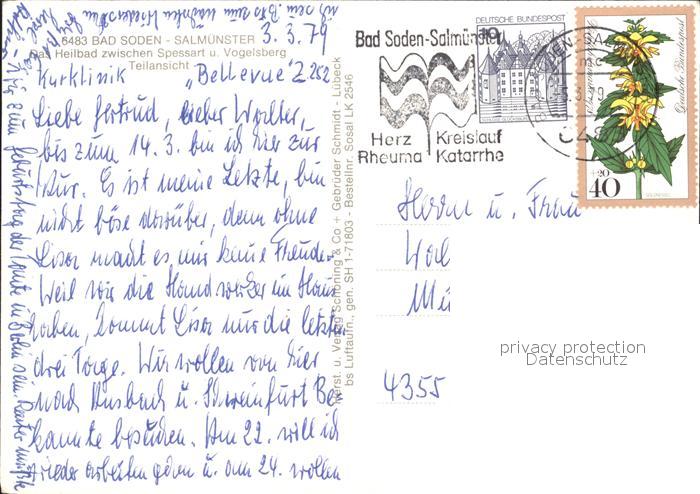 6483 BAD SODEN - SALMÜNSTER
Das Heilbad zwischen Spessart u. Vogelsberg
Teilansicht
3.3.79
Kurklinik „Bellevue" Z 252
Liebe Gertrud, lieber Walter,
bis zum 14. 3. bin ich hier zur
Kur. Es ist meine Letzte, bin
nicht böse darüber, denn ohne
Lisor macht es mir keine Freude.
Weil wir die Handwerker im Haus
haben, kommt Lisor nur die letzten
drei Tage. Wir wollen von hier
nach Ansbach u. Schweinfurt Be-
kannte besuchen. Am 22. will ich
wieder arbeiten gehen u. am 24. wollen
wir zum Geburtstag der Tante in Berlin sein
auf ein bis zum nächsten Wiedersehen
Herst. u. Verlag Schöning & Co + Gebrüder Schmidt - Lübeck
bs Luftaufn., gen. SH 1-71803 - Bestellnr. Sosal LK 2546
Bad Soden-Salmünster
Herz Kreislauf
Rheuma Katarrhe
DEUTSCHE BUNDESPOST
Deutsche Bundespost
+20
40
Herrn u. Frau
4355
privacy protection
Datenschutz